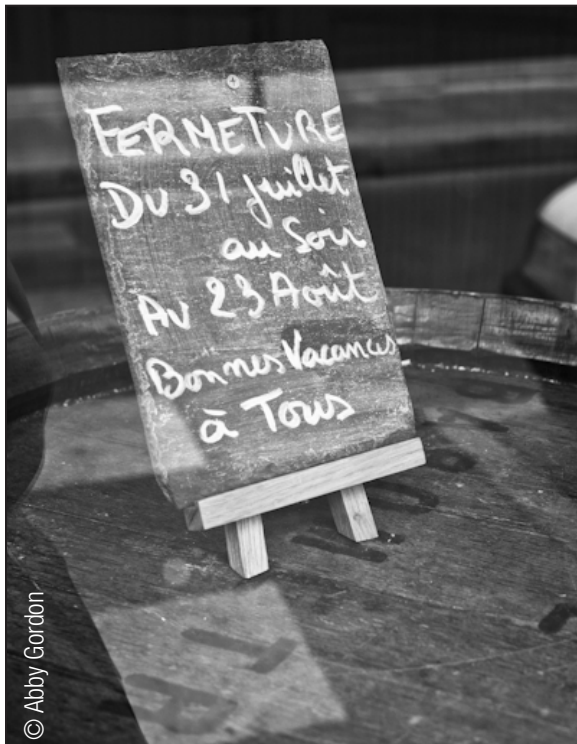 FERMETURE
DU 31 juillet
au Soir
AU 23 Août
Bonnes Vacances
à Tous
© Abby Gordon